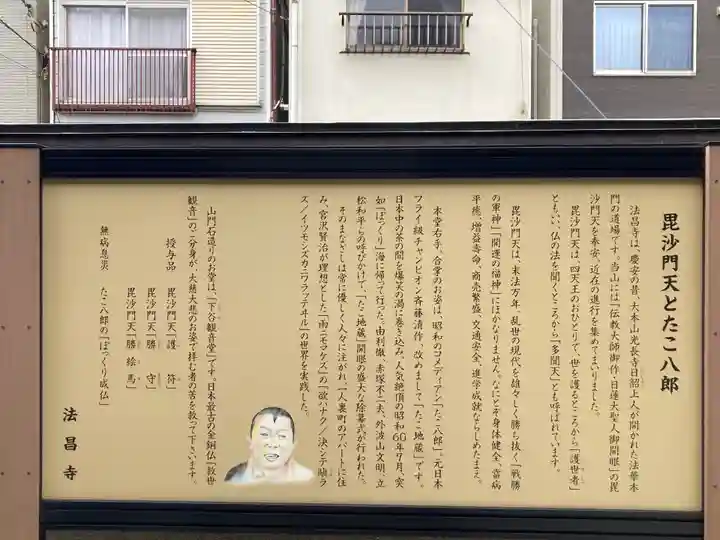 毘沙門天とたこ八郎
法昌寺は、慶安の昔、大本山光長寺日韶上人が開かれた法華本
門の道場です。当山には「伝教大師御作・日蓮大聖人御開眼」の毘
沙門天を奉安、近在の進行を集めてまいりました。
毘沙門天は、四天王のおひとりで、世を護るところから「護世者」
ともいい、仏の法を聞くところから「多聞天」とも呼ばれています。
毘沙門天は、末法万年、乱世の現代を雄々しく勝ち抜く、「戦勝
の軍神」「開運の福神」にほかなりません。なにとぞ身体健全、當病
平癒、増益寿命、商売繁盛、交通安全、進学成就ならしめたまえ。
本堂右手、合掌のお姿は、昭和のコメディアン「たこ八郎」。元日本
フライ級チャンピオン・斉藤清作、改めまして「たこ地蔵」です。
日本中の茶の間を爆笑の渦に巻き込み、人気絶頂の昭和60年7月、突
如「ぽっくり」海に帰って行った。由利徹、赤塚不二夫、外波山文明、立
松和平らの呼びかけで、「たこ地蔵」開眼の盛大な除幕式が行われた。
そのまなざしは常に優しく人々に注がれ、「人裏町のアパートに住
み、宮沢賢治が理想とした「雨ニモマケズ」の「欲ハナク／決シテ瞋ラ
ズ／イツモシズカニワラッテヰル」の世界を実践した。
山門右石造りのお堂は、「下谷観音堂」です。日本最古の金銅仏「救世
観音」のご分身が、大慈大悲のお姿で拝む者の苦を救って下さいます。
授与品 毘沙門天「護符」
毘沙門天「勝守」
毘沙門天「勝絵馬」
無病息災 たこ八郎の「ぽっくり成仏」
法昌寺